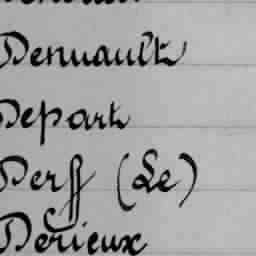 Denuault
Depart
Derff (Le)
Dérieux